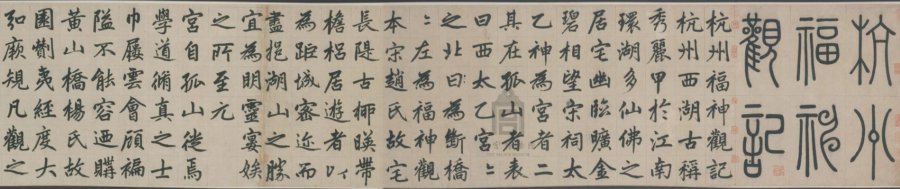 杭州
福神
觀記
杭州福神觀記
杭州西湖古稱
秀麗甲於江南
環湖多仙佛之
居宅幽臨曠金
碧相望宋祠太
乙神為宮者二
其在孤山者
曰西太乙宮〻
之北曰為斷橋
〻左為福神觀
本宋趙氏故宅
長隄古柳暎帶
檐梠居遊者以
為距城密迩而
盡挹湖山之勝
宜為明靈宴娭
之所至元
宮自孤山徙焉
學道脩真之士
巾屨雲會顧褊
隘不能容迺購
黃山橋楊氏故
園劃夷經度大
弘厥規凡觀之